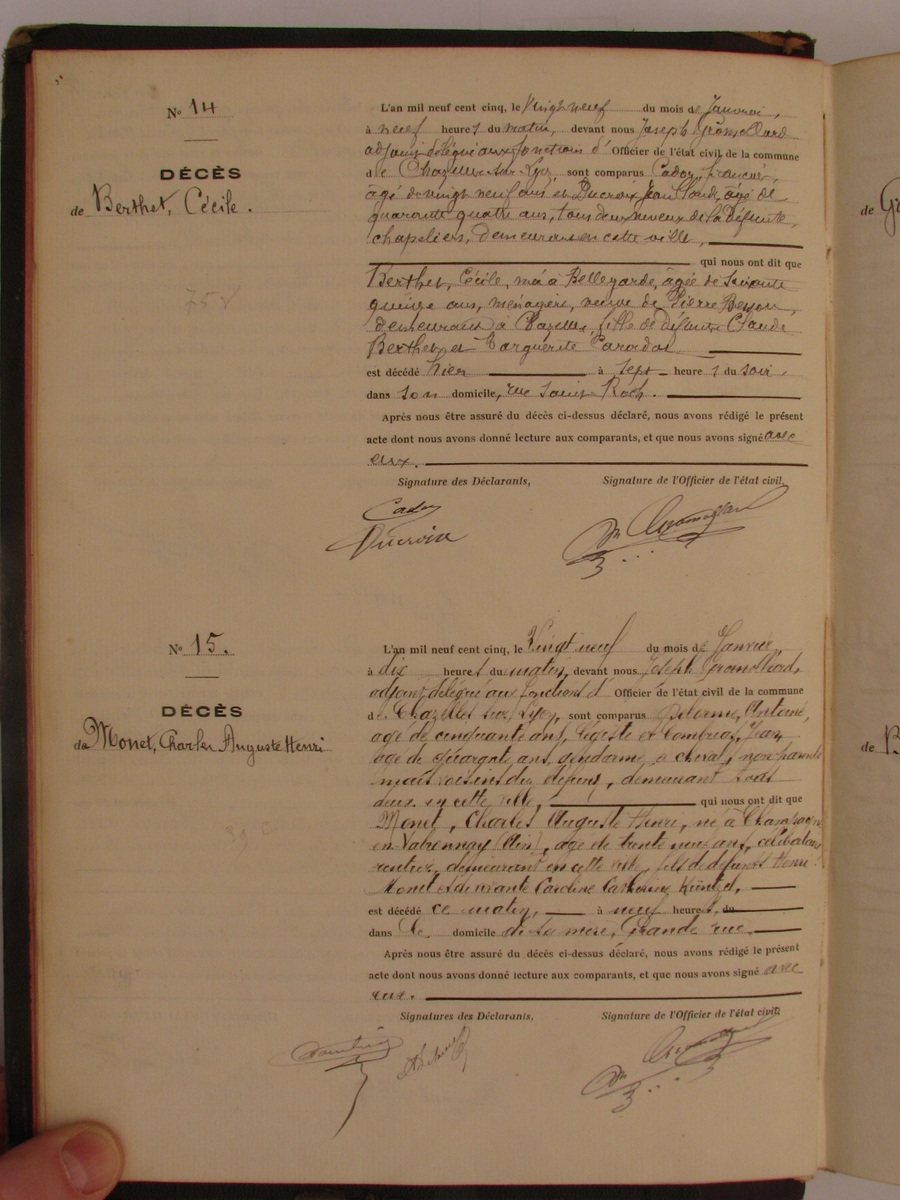 N° 14
DÉCÈS
de Berthet, Cécile.
L'an mil neuf cent cinq, le vingt neuf du mois de Janvier,
à neuf heures du matin, devant nous Joseph Gromollard
adjoint délégué aux fonctions d' Officier de l'état civil de la commune
de Chazelles-sur-Lyon, sont comparus Cador, Francois,
âgé de vingt neuf ans et Ducroix Jean Claude, âgé de
quarante quatre ans, tous deux neveux de la défunte,
chapeliers, demeurant en cette ville,
qui nous ont dit que
Berthet, Cécile, née à Bellegarde, âgée de soixante
quinze ans, ménagère, veuve de Pierre
demeurant à Chazelles, fille de défunts Claude
Berthet et Marguerite
est décédé hier à sept heures du soir,
dans son domicile, rue Saint-Roch.
Après nous être assuré du décès ci-dessus déclaré, nous avons rédigé le présent
acte dont nous avons donné lecture aux comparants, et que nous avons signé avec
eux.
Signature des Déclarants, Signature de l'Officier de l'état civil,
Cador
Ducroix
Gromollard
N° 15.
DÉCÈS
de Monet, Charles Auguste Henri
L'an mil neuf cent cinq, le Vingt neuf du mois de Janvier,
à dix heures du matin, devant nous Joseph Gromollard,
adjoint délégué aux fonctions d' Officier de l'état civil de la commune
de Chazelles sur Lyon, sont comparus Antoine,
âgé de cinquante ans, et Jean
âgé de quarante ans, gendarme à cheval, non parents
mais voisins du défunt, demeurant tous
deux en cette ville, qui nous ont dit que
Monet, Charles Auguste Henri, né à Champagne
en Valromey (Ain), âgé de trente neuf ans, célibataire
rentier, demeurant en cette ville, fils de défunt Henri
Monet et de vivante Caroline Catherine Küntzel,
est décédé ce matin, à neuf heures, du
dans le domicile de sa mère, Grande rue.
Après nous être assuré du décès ci-dessus déclaré, nous avons rédigé le présent
acte dont nous avons donné lecture aux comparants, et que nous avons signé avec
eux.
Signatures des Déclarants, Signature de l'Officier de l'état civil,
Gromollard